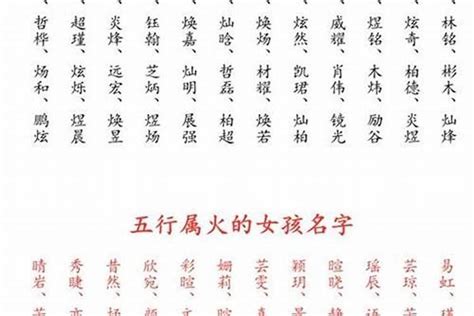 林铭、彬木、灿烽
炫奇、柏德、炎煜
煜铭、木炜、励谷
威耀、肖伟、镜光
炫然、凯珺、灿和
焕炀、材耀、焕若
灿晗、哲磊、柏超
焕嘉、灿明、展强
钰翰、芝炳、煜炀
炎烽、远宏、焕昱
超瑾、炫烁、煜晨
哲桦、炀和、鹏炫
五行属火的女孩名字
易虹、
芸琼、
瑶辰、
暄晓、
颖玥、
芸雯、
姗莉、
彩暄、
欣宛、
昔然、
秀睫、
晴岩、